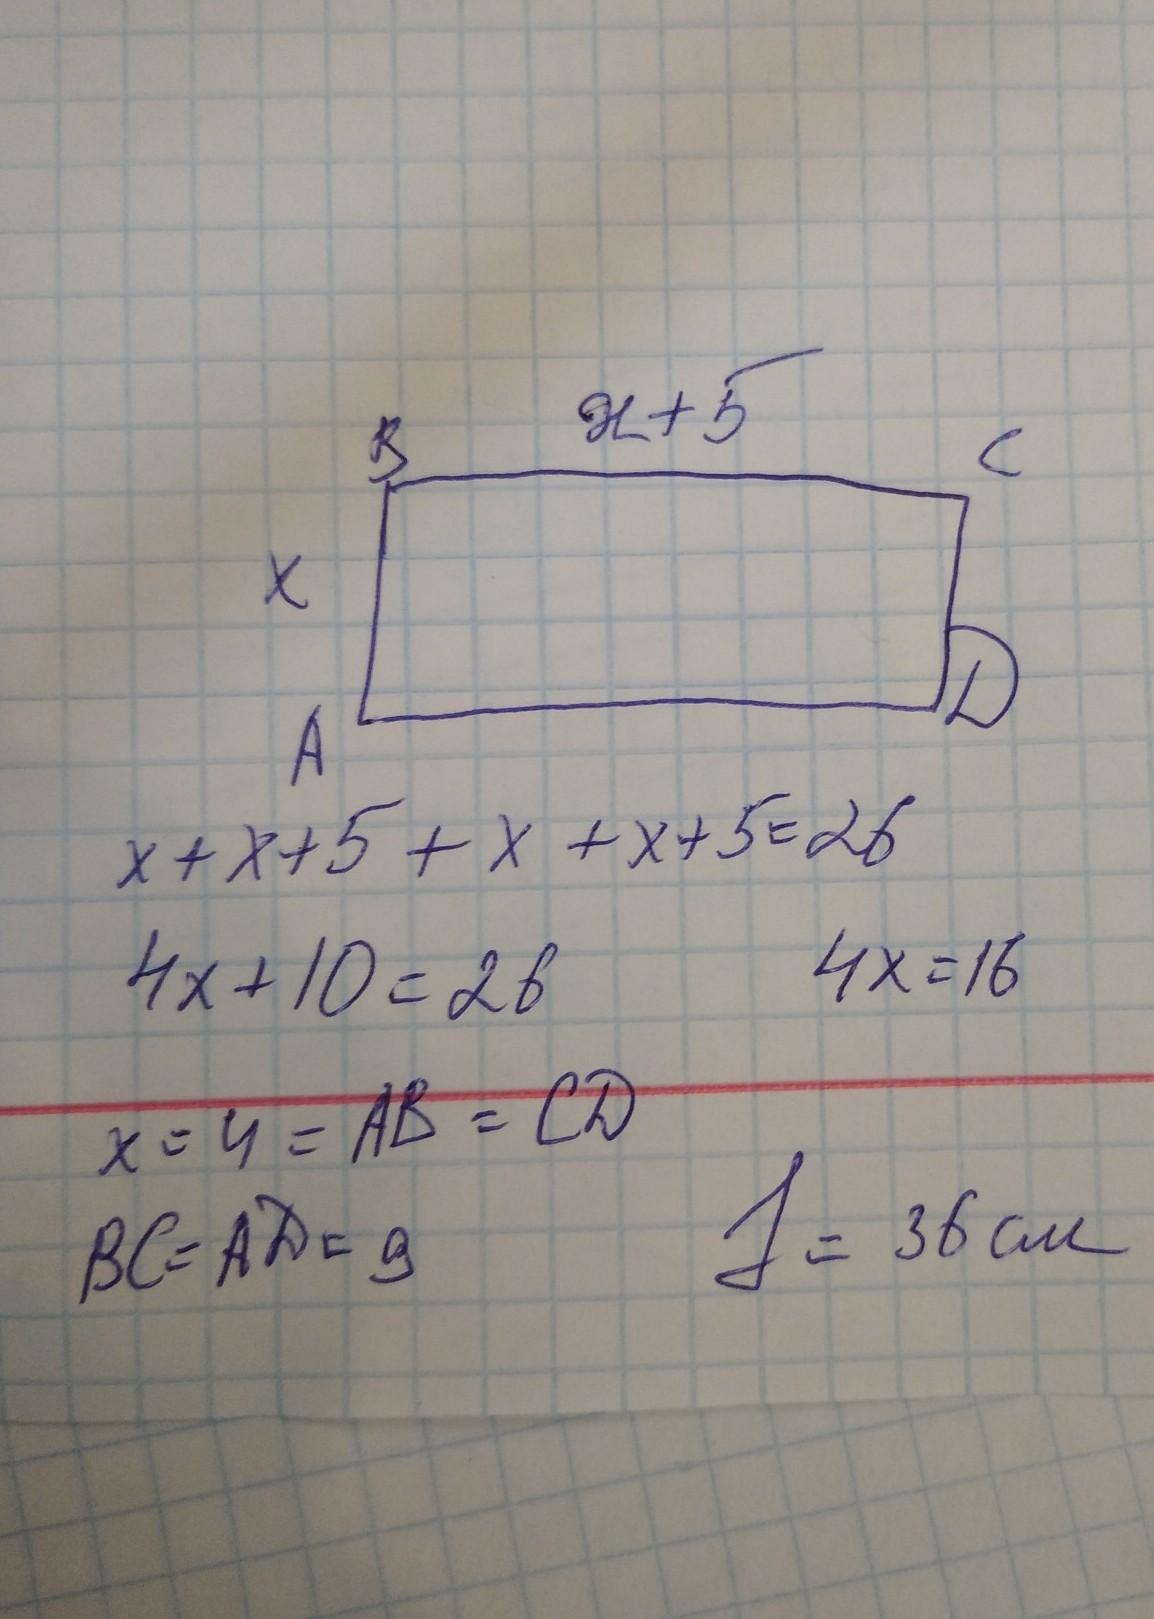 x+5
B
C
x
A
D
x+x+5+x+x+5=26
4x+10=26 4x=16
x=4=AB=CD
BC=AD=9
S=36см